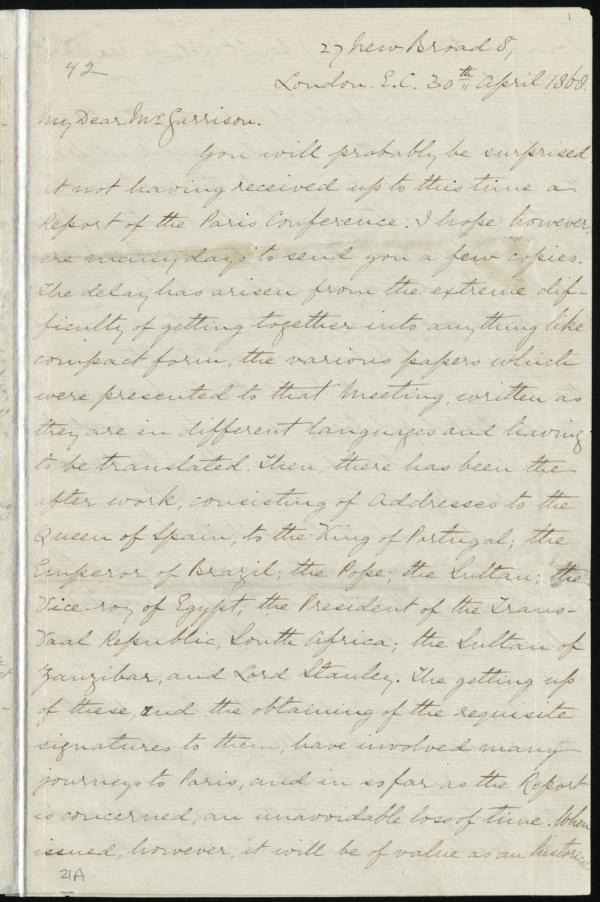 1
27 New Broad St,
42
London. E.C. 30th April 1868.
My Dear Mr Garrison.
You will probably be surprised
at not having received up to this time a
Report of the Paris Conference. I hope, however,
ere many days to send you a few copies.
The delay has arisen from the extreme dif-
ficulty of getting together into anything like
compact form, the various papers which
were presented to that Meeting, written as
they are in different languages and having
to be translated. Then, there has been the
after work, consisting of Addresses to the
Queen of Spain; to the King of Portugal; the
Emperor of Brazil; the Pope; the Sultan; the
Vice-roy of Egypt; the President of the Trans-
Vaal Republic, South Africa; the Sultan of
Zanzibar, and Lord Stanley. The getting up
of these, and the obtaining of the requisite
signatures to them, have involved many
journeys to Paris, and in so far as the Report
is concerned, an unavoidable loss of time. When
issued, however, it will be of value as an historical
21A